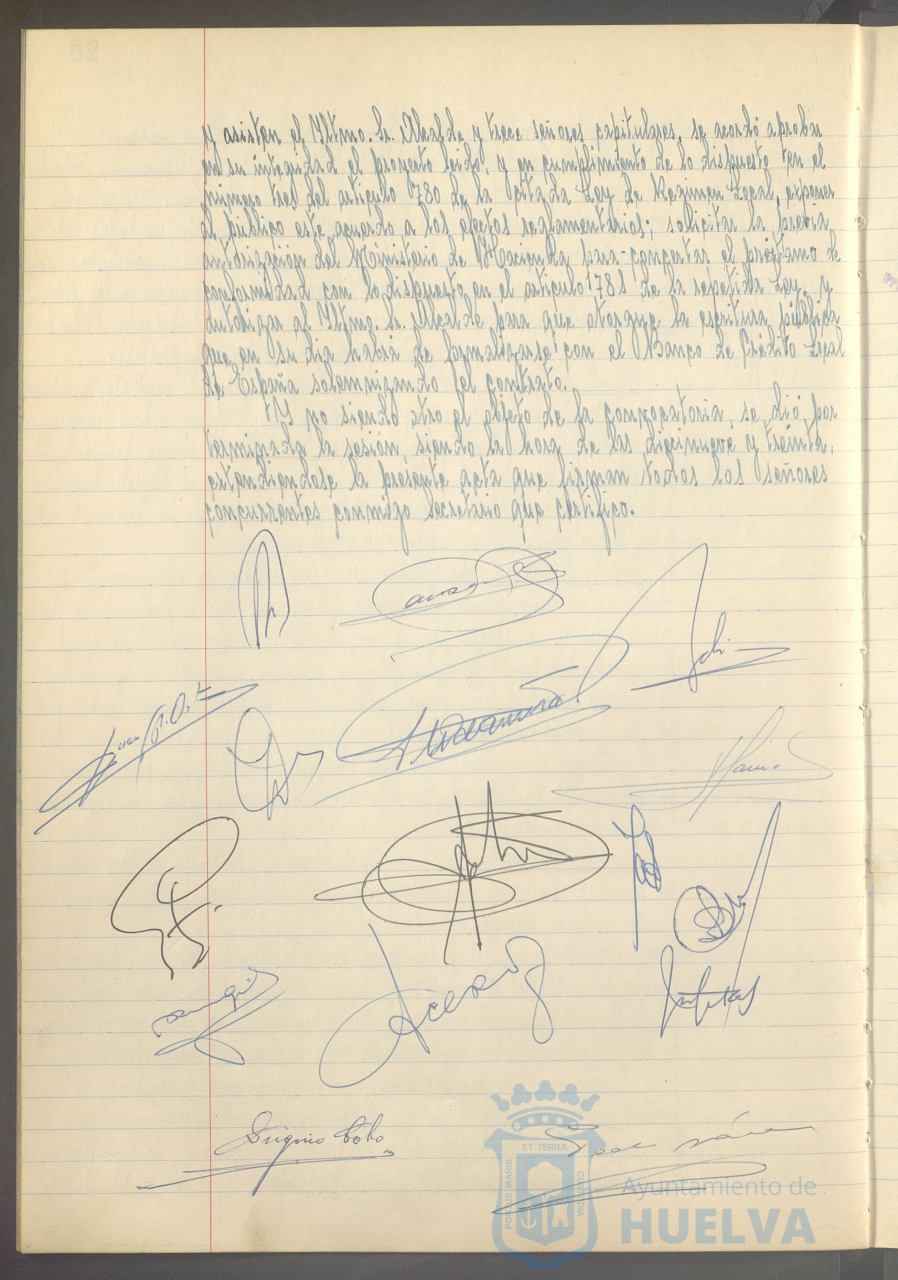 y asisten el Iltmo. Sr. Alcalde y trece señores capitulares, se acordó aprobar
en su integridad el proyecto leido, y en cumplimiento de lo dispuesto en el
número tres del artículo 780 de la citada Ley de Regimen Local, exponer
al público este acuerdo a los efectos reglamentarios; solicitar la previa
autorización del Ministerio de Hacienda para concertar el préstamo de
conformidad con lo dispuesto en el artículo 781 de la repetida Ley, y
autorizar al Iltmo. Sr. Alcalde para que otorgue la escritura pública
que en su día habrá de formalizarse con el Banco de Crédito Local
de España solemnizando el contrato.
Y no siendo otro el objeto de la convocatoria, se dió por
terminada la sesión, siendo la hora de las diecinueve y treinta,
extendiendose la presente acta que firman todos los señores
concurrentes conmigo Secretario que certifico.
ET TERRÆ
PORTUS MARIS
CUSTODIA
Ayuntamiento de
HUELVA